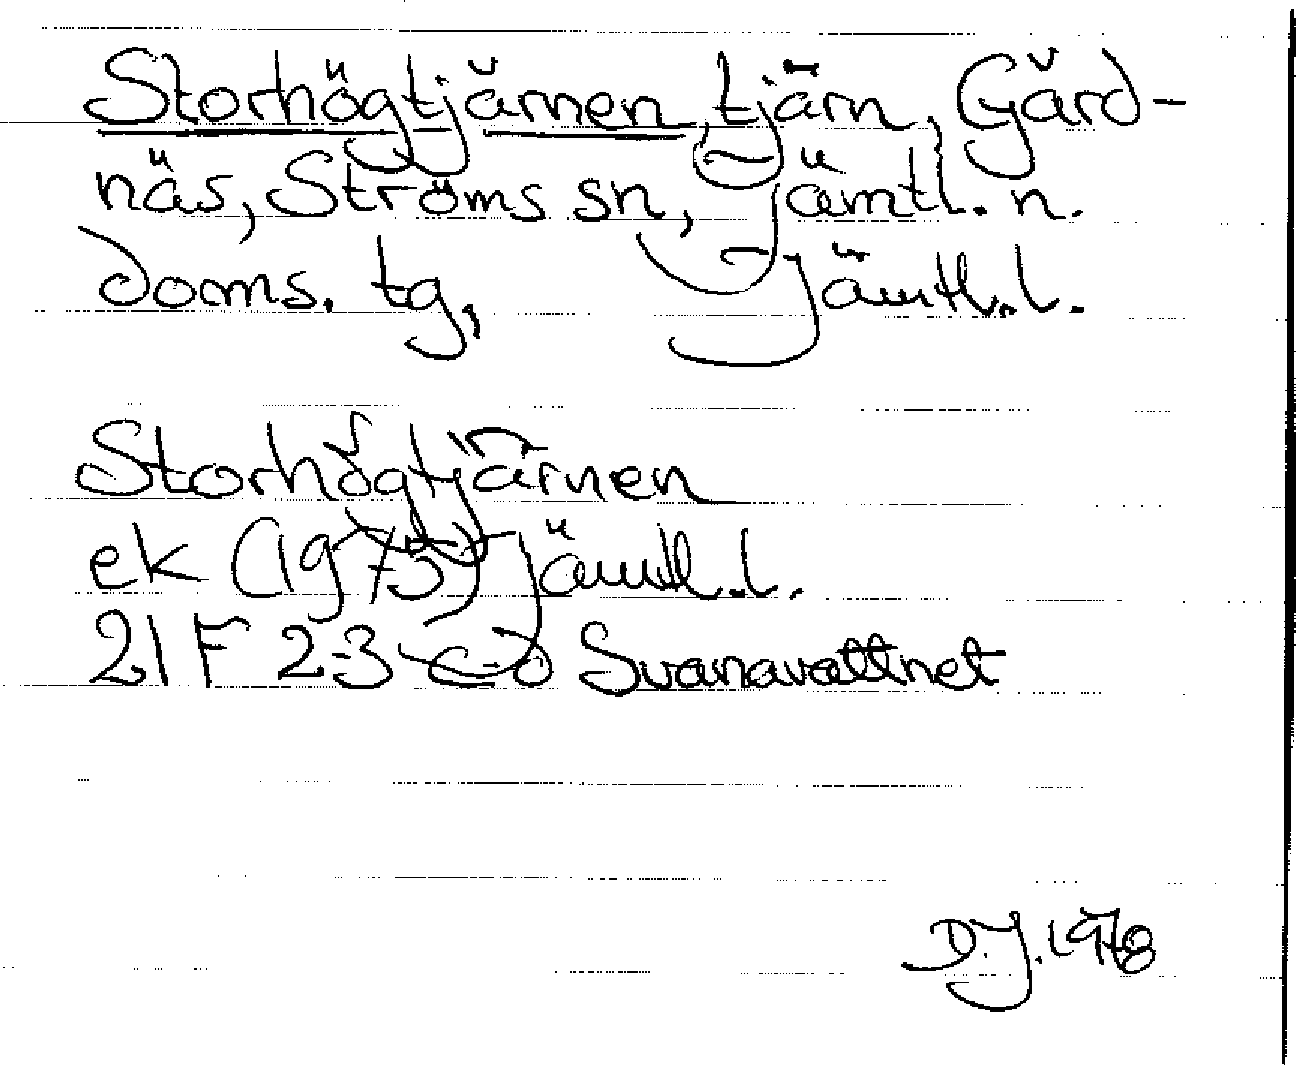 Storhögtjärnen, tjärn, Gård-
näs, Ströms sn, Jämtl. n.
doms. tg, Jämtl. l.
Storhögtjärnen
ek (1975) Jämtl. l.
21 F 2-3 c-d Svanavattnet
D.J. 1978